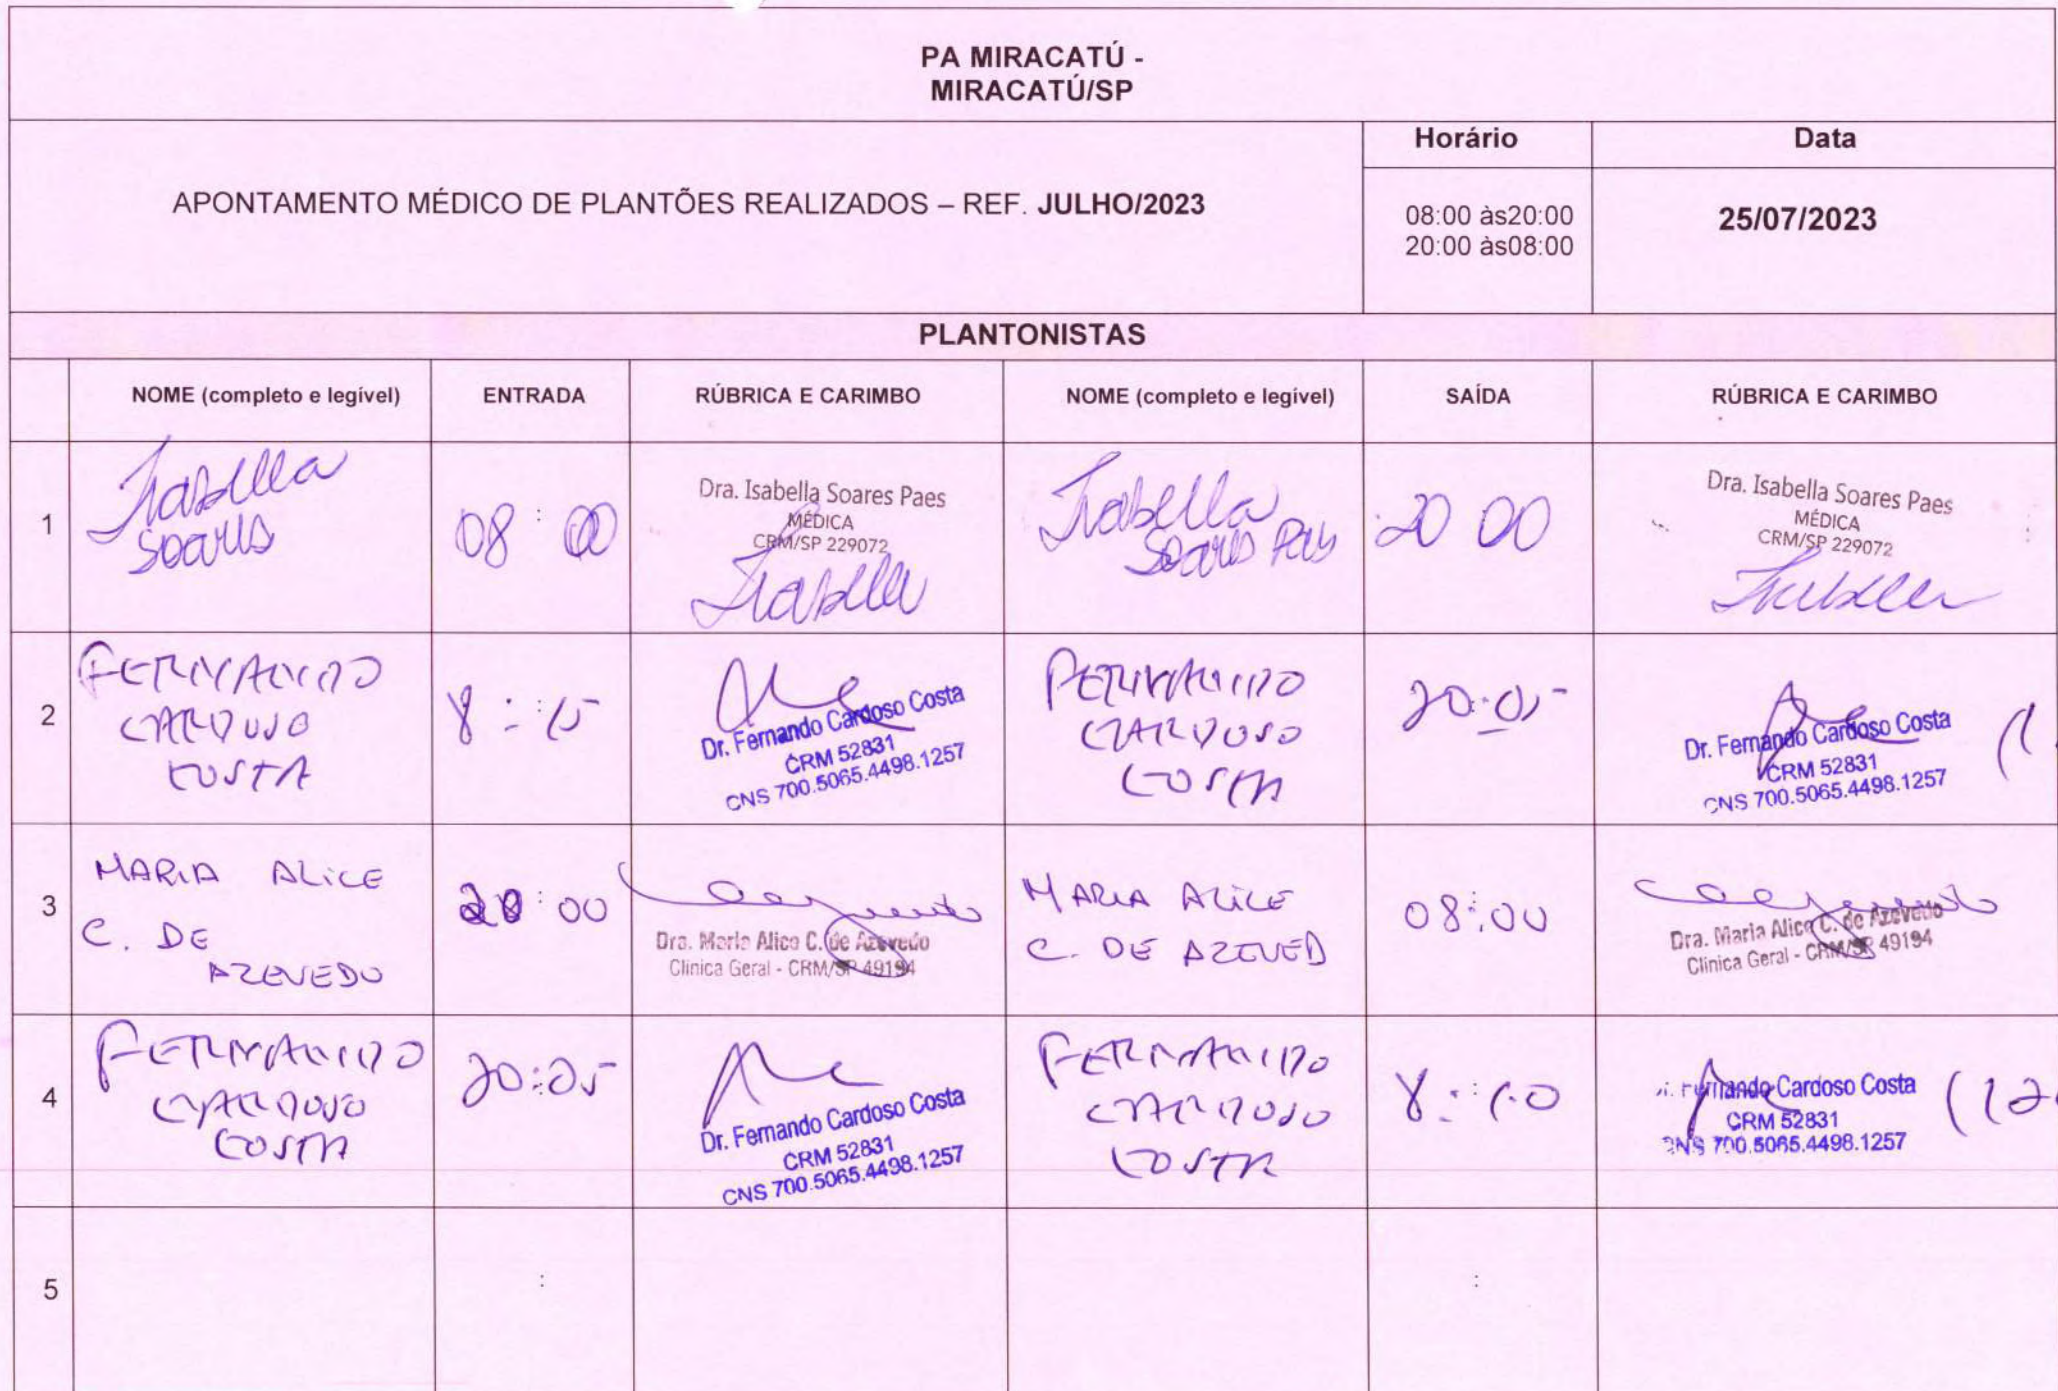 PA MIRACATÚ -
MIRACATÚ/SP
Horário
Data
APONTAMENTO MÉDICO DE PLANTÕES REALIZADOS – REF. JULHO/2023
08:00 às20:00
20:00 às08:00
25/07/2023
PLANTONISTAS
NOME (completo e legível)
ENTRADA
RÚBRICA E CARIMBO
NOME (completo e legível)
SAÍDA
RÚBRICA E CARIMBO
1
Isabella
Soares
08:00
Dra. Isabella Soares Paes
MÉDICA
CRM/SP 229072
Isabella
Isabella
Soares Paes
20 00
Dra. Isabella Soares Paes
MÉDICA
CRM/SP 229072
Isabella
2
FERNANDO
CARDOSO
COSTA
8::15
Dr. Fernando Cardoso Costa
CRM 52831
CNS 700.5065.4498.1257
FERNANDO
CARDOSO
COSTA
20:05
Dr. Fernando Cardoso Costa
CRM 52831
CNS 700.5065.4498.1257
3
MARIA ALICE
C. DE
AZEVEDO
20:00
Dra. Maria Alice C. de Azevedo
Clinica Geral - CRM/SP 49194
MARIA ALICE
C. DE AZEVED
08:00
Dra. Maria Alice C. de Azevedo
Clinica Geral - CRM/SP 49194
4
FERNANDO
CARDOSO
COSTA
20:05
Dr. Fernando Cardoso Costa
CRM 52831
CNS 700.5065.4498.1257
FERNANDO
CARDOSO
COSTA
8::10
Fernando Cardoso Costa
CRM 52831
CNS 700.5065.4498.1257
(12
5
:
: